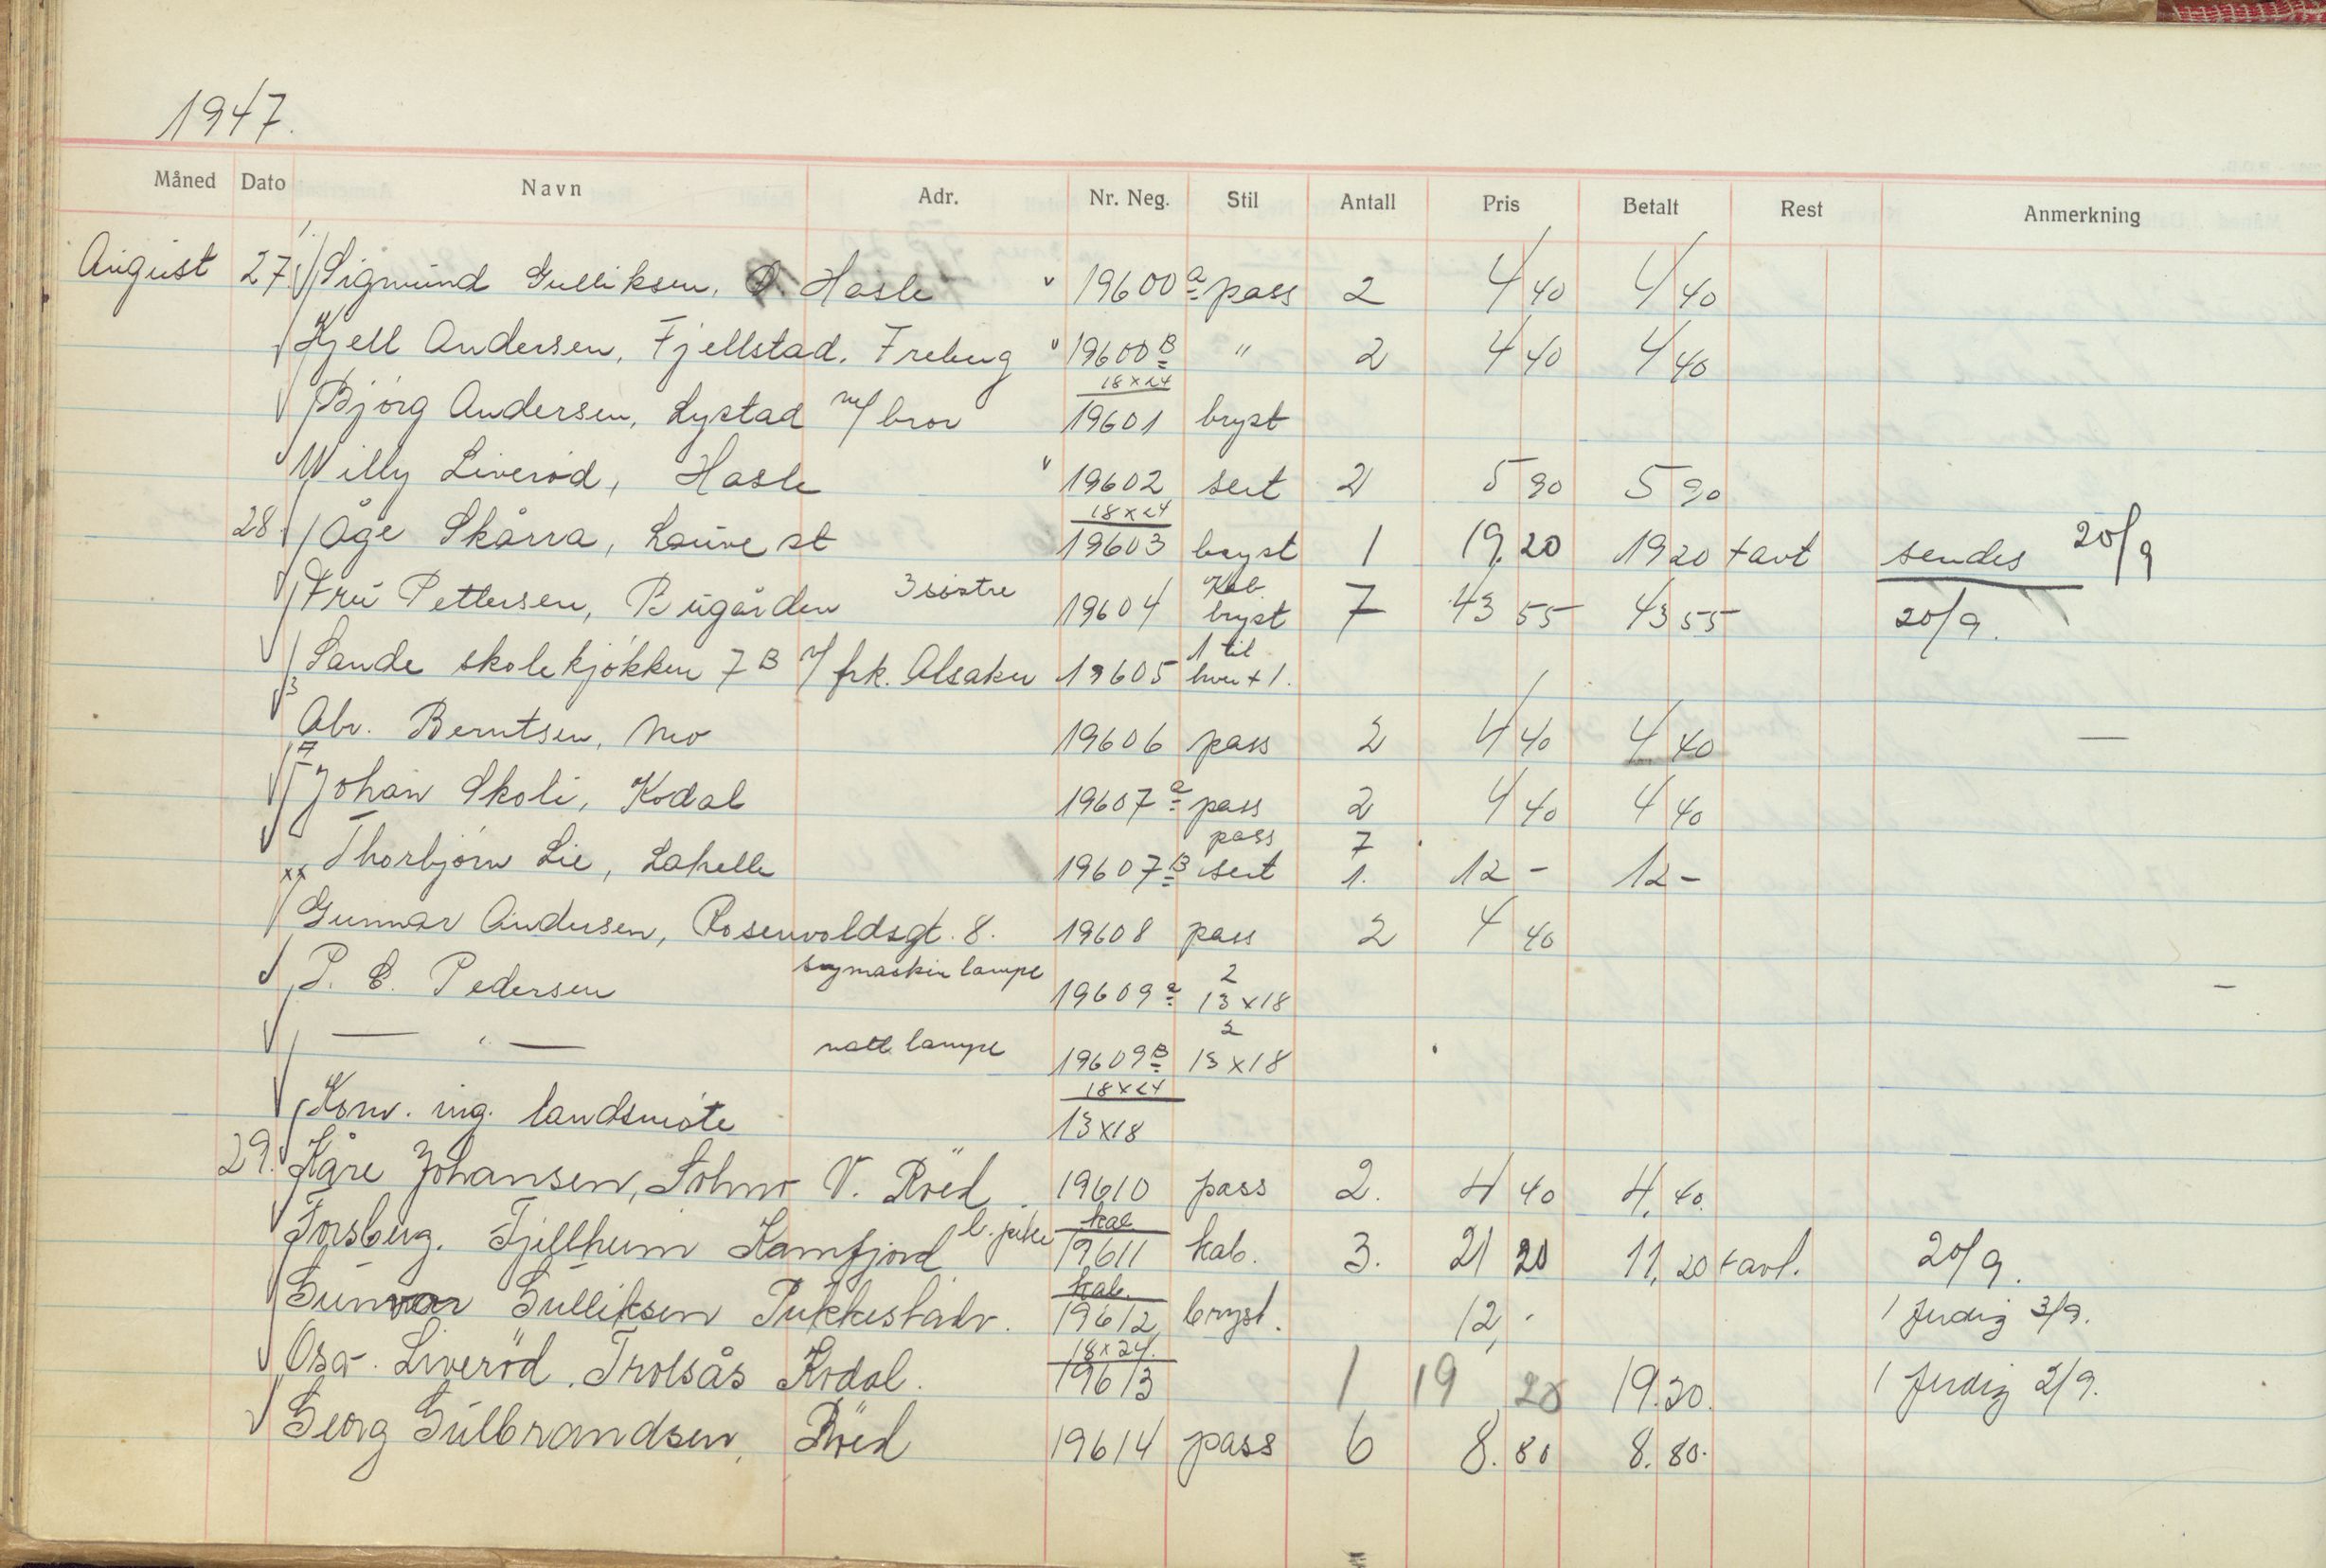 1947.
Måned Dato Navn Adr. Nr. Neg. Stil Antall Pris Betalt Rest Anmerkning
August 27. Sigmund Gulliksen, Hasle 19600 a pass 2 4 40 4 40
Kjell Andersen, Fjellstad, Freberg 19600 B " 2 4 40 4 40
18x24
Bjørg Andersen, Lystad m/ bror 19601 bryst
Willy Liverød, Hasle 19602 sert 2 5 90 5 90
18x24
28. Åge Skårra, Lauve st 19603 bryst 1 19,20 19 20 + avt sendes 20/9
Kab.
Fru Pettersen, Bugården 3 søstre 19604 bryst 7 43 55 43 55 20/9.
1 til
Sande skolekjøkken 7 B m/ frk. Alsaker 19605 hver + 1.
Abr. Berntsen, Mo 19606 pass 2 4 40 4 40 —
Johan Skoli, Kodal 19607 a pass 2 4 40 4 40
pass 7
xx Thorbjørn Lie, Lahelle 19607 B sert 1. 12 - 12 -
Gunnar Andersen, Rosenvoldsgt. 8. 19608 pass 2 4 40
P. C. Pedersen symaskin lampe 19609 a 2 13x18
— " — natt lampe 19609 B 2 13x18
18x24
Konv. ing. landsmøte 13x18
29. Kåre Johansen, Solmo V. Röed 19610 pass 2. 4 40 4,40.
kab
Forsberg. Fjellheim Kamfjord l. pike 19611 kab. 3. 21 20 11,20 + avt. 20/9.
kab.
Gunvor Gulliksen Pukkestadv. 19612 bryst. 12,- 1 ferdig 3/9.
18x24.
Osv. Liveröd. Trolsås Kodal. 19613 1 19 20 19.20. 1 ferdig 2/9.
Georg Gulbrandsen, Röed 19614 pass 6 8.80 8.80.